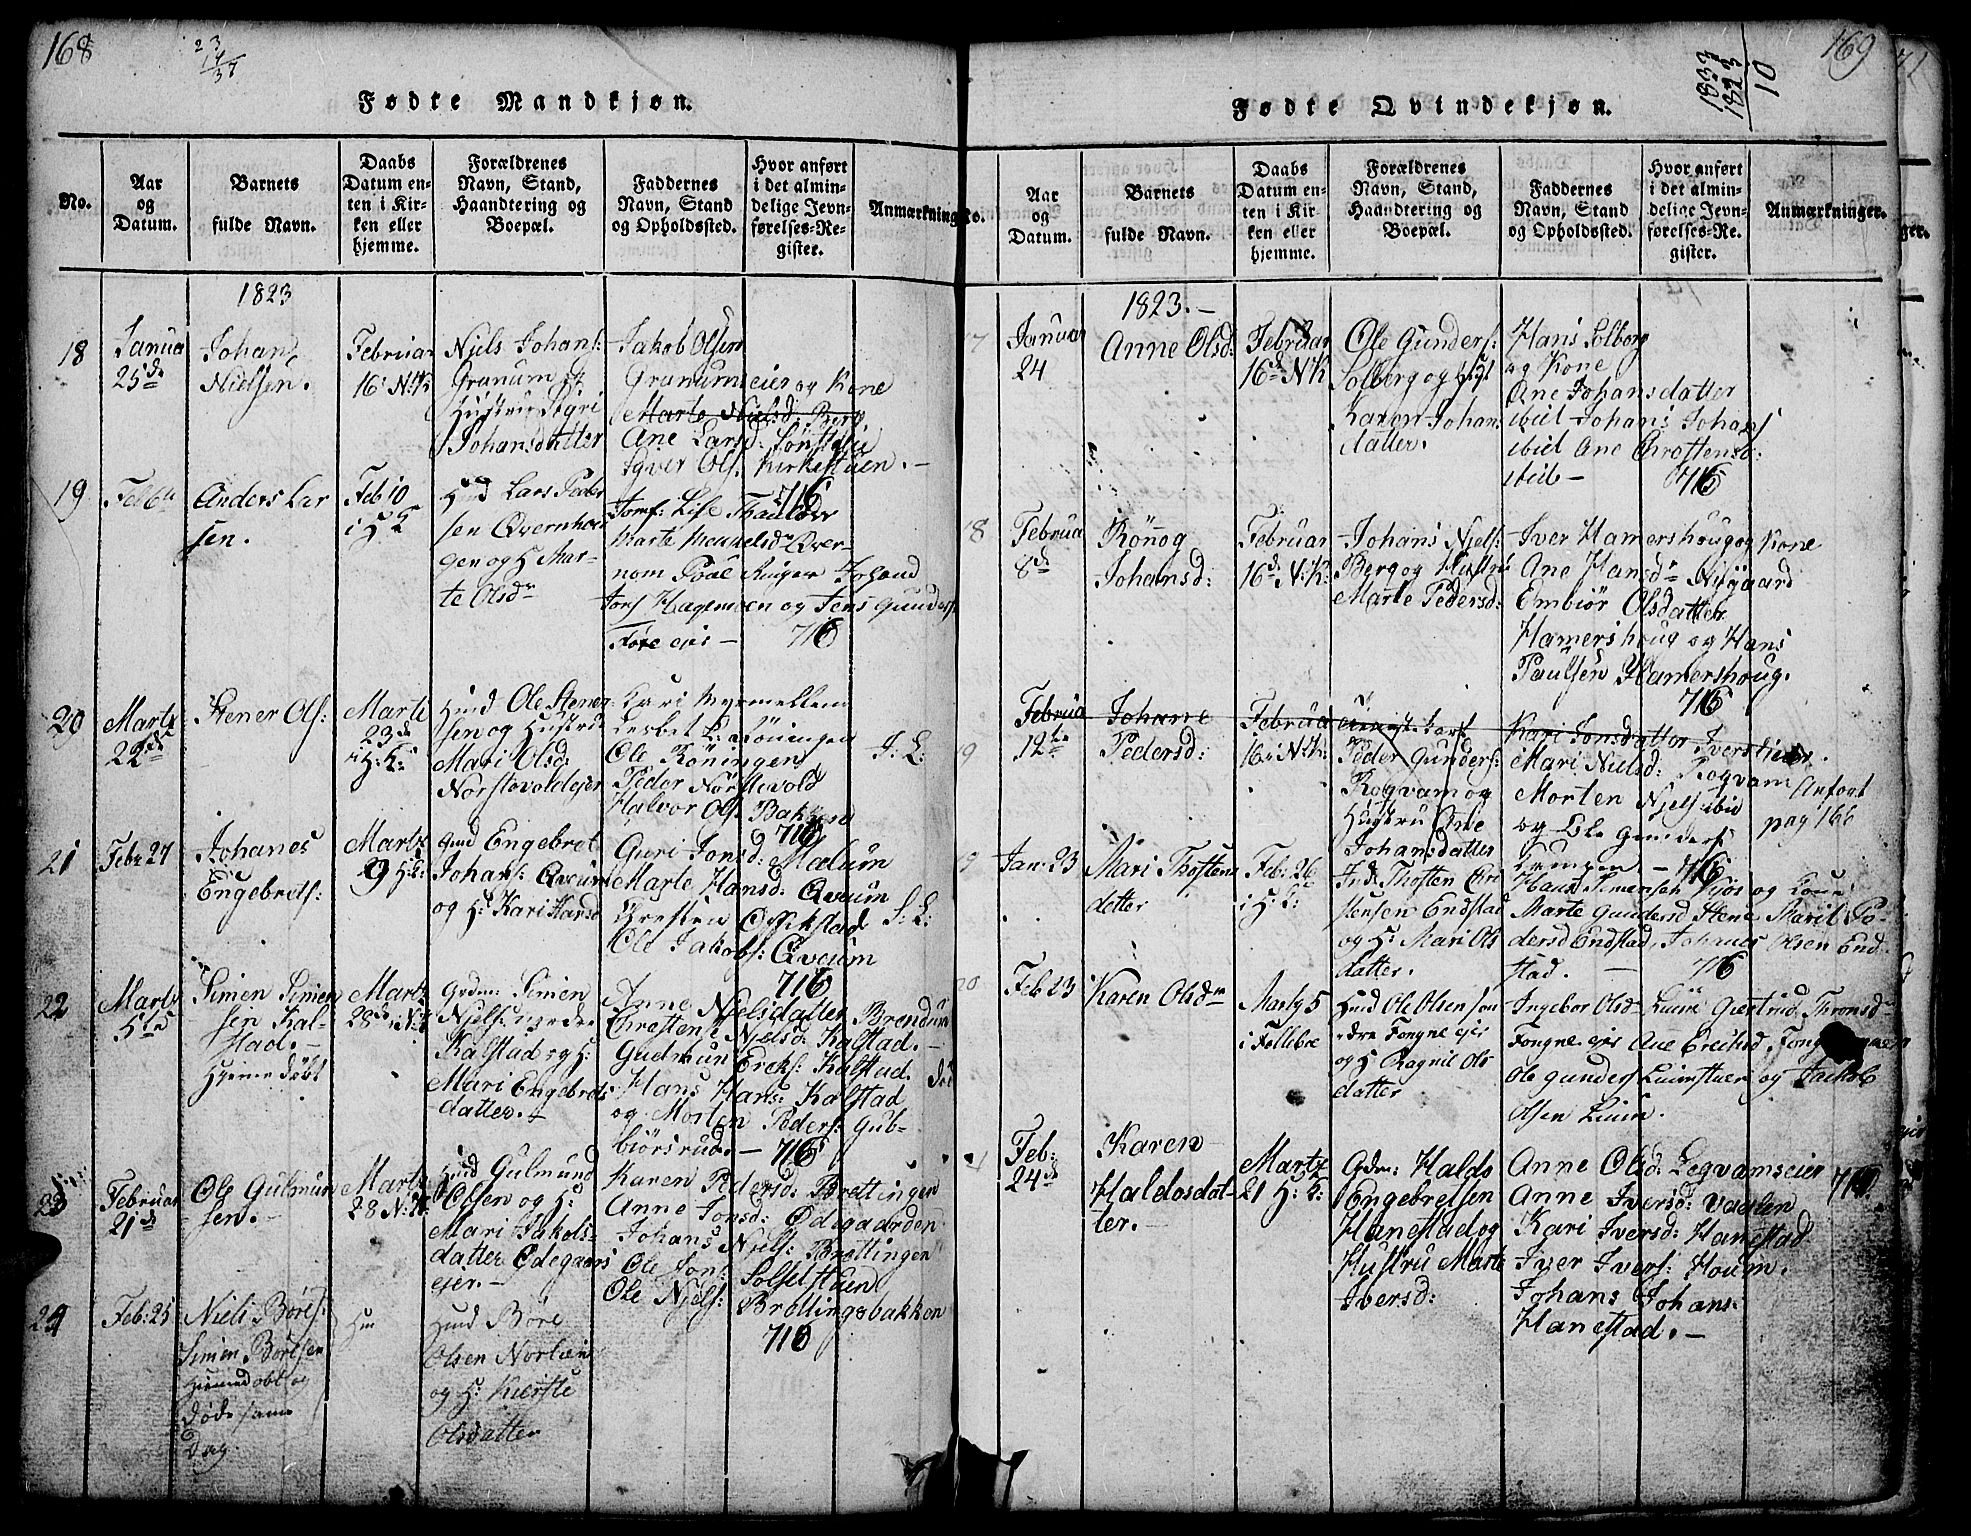 168
23
14
37
Fødte Mandkjøn.
No.
Aar
og
Datum.
Barnets
fulde Navn.
Daabs
Datum en-
ten i Kir-
ken eller
hjemme.
Forældrenes
Navn, Stand,
Haandtering og
Boepæl.
Faddernes
Navn, Stand
og Opholdssted.
Hvor anført
i det almin-
delige Jevn-
førelses-Re-
gister.
Anmærkning
1823
18
Janua
25de
Johan
Nielsen.
Februar
16 N:K
Niels Johans:
Granum &
Hustru Sigri
Johansdatter
Jakob Olsen
Granumseier og Kone
Marte Nielsd: Berg
Ane Larsd:
Iver Ols: Kirkestuen. -
716
19
Feb 6te
Anders Lar
sen.
Feb 10
i H K
Hmd Lars Peder
sen Qvernhou
gen og H Mar-
te Olsdr
Jomf: Lise Thaulow
Marte
nom Poul
Hagemoen og Jens Gunders
eier -
716
20
Marts
22de
Stener Ols:
Marts
23de
i H: K:
Hmd Ole Stener
sen og Hustru
Mari Olsd:
Norstevoldeier
Kari
Lisbet L: Röningen
Ole Röningen
Peder Nörstevold
Halvor Ols: Bakken
716
I: E:
21
Febr 27
Johanes
Engebrets:
Marts
9 H:K:
Gmd Engebret
Johans: Qveum
og H: Kari Hansd
Guri Jonsd: Mælum
Marte Hansd: Qveum
Christen Opsestad
Ole Jakobs: Qveum
716
22
Marts
5te
Simen Simen
sen Kal-
stad. -
Hjemedøbt
Marts
28de i N:K
Grdm: Simen
Njels: nedre
Kalstad og H:
Mari Engebrets
datter. -
Anne Njelsdatter Brendum
Chresten Njelsd: Kalstad. -
Gudrun Ericks: Kalstad.
Hans Hans: Kalstad
og Morten Peders: Gub-
biörsrud. - 716
23
Februar
21de
Ole Gulmun
sen. -
Marts
28 N:K:
Hmd Gulmund
Olsen og H:
Mari Jakobs-
datter Ödegaars
ejer. -
Karen Pedersd: Brettingen
Anne Jonsd: Ödegaarden
Johans Njels: Brottingen
Ole Jon: Solsetstuen
Ole Njels: Brottingsbakken
716
24
Feb: 25
Niels Börs:
Simen Börsen
Hiemedøbt og
døde same
Dag
Hmd Böre
Olsen Norlien
og H: Kiersti
Olsdatter
169
1833
1823
10
Fødte Qvindekjøn.
No.
Aar
og
Datum.
Barnets
fulde Navn.
Daabs
Datum en-
ten i Kir-
ken eller
hjemme.
Forældrenes
Navn, Stand,
Haandtering og
Boepæl.
Faddernes
Navn, Stand
og Opholdssted.
Hvor anført
i det almin-
delige Jevn-
førelses-Re-
gister.
Anmærkninger.
1823. -
17
Januar
24
Anne Olsd:
Februar
16de N K
Ole Gunders:
Solberg og Hust
Karen Johans
datter.
Hans Solberg
og Kone
Ane Johansdatter
ibid Johans Johans
ibid Ane Chrostensd:
ibid -
716
18
Februa
8de
Rönog
Johansd:
Februar
16de N:K:
Johans Njels:
Berg og Hustru
Marte Pedersd:
Iver Hamershoug og Kone
Ane Hansdr Nygaard
Embiör Olsdatter
Hamershoug og Hans
Paulsen Hamershoug.
716
19
Februa
12te
Johane
Pedersd:
Februar
16 i N:K:
Peder Gunders:
Rogvam og
Hustru Ane
Johansdatter
Kari Jonsdatter Iverstuen.
Mari Nielsd: Rogvam
Morten Njels ibid
og Ole Gunders
- 716
Anfort
pag 166
19
Jan: 23
Mari Thosten
datter
Feb: 26
i H: K:
Inds Thosten Chri
stensen Endstad
og H: Mari Ols
datter.
Hans Simensen og Kone
Marte Gundersd Stene Marit Pe-
dersd Endstad, Johanes Olsen End-
stad. -
716
20
Feb 23
Karen Olsdr
Marty 5
i Follebu
Hmd Ole Olsen søn
dre Fongne ejer
og H Ragnil Ols
datter
Ingebor Olsd Giertrud Thronsd
Fongne ejer Ane Ericksd Fongne
Ole Gunders og Jackob
Olsen
Feb:
24de
Karen
Haldosdat-
ter. -
Marts
21 H: K:
Grdm: Haldo
Engebretsen
Hanestad og
Hustru Marte
Iversd:
Anne Olsd: Legvamseier 716
Anne Iversd: Vaalen
Kari Iversd: Hanestad
Iver Ivers: Houm.
Johans Johans:
Hanestad. -